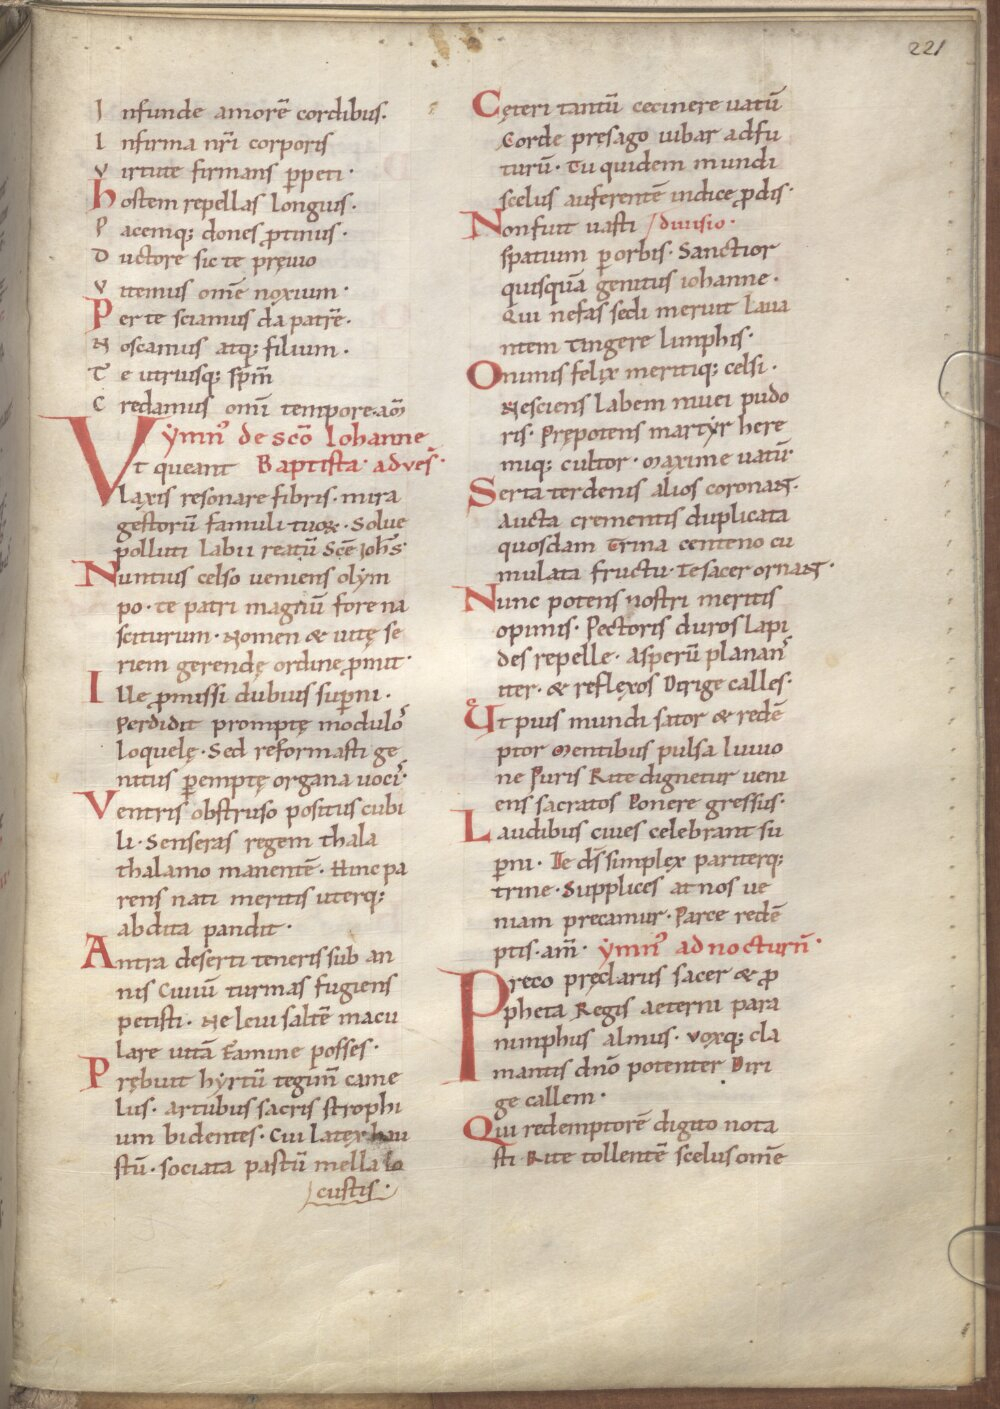 221
Infunde amorē cordibus.
Infirma nr̄i corporis
Virtute firmans ꝑpeti·
hostem repellas longius·
Pacemq; dones ꝓtinus·
Ductore sic te pręuio
Vitemus om̄e noxium·
Per te sciamus da patrē·
Noscamus atq; filium·
Te utriusq; sp̄m
Credamus om̄i tempore·am̄
ẏmn᾽ de sc̄o Iohanne
Vt queant Baptista· ad ves̄·
laxis resonare fibris· mira
gestorū famuli tuoꝝ· Solue
polluti labii reatū Sc̄e Joh̄s·
Nuntius celso ueniens olẏm
po· te patri magnū fore na
sciturum· Nomen & uitę se
riem gerendę ordine ꝓmit·
Ille ꝓmissi dubius suꝑni·
Perdidit promptę modulo᾽
loquelę· Sed reformasti ge
nitus ꝑemptę organa uoci᾽·
Ventris obstruso positus cubi
li· Senseras regem thala
thalamo manentē· Hinc pa
rens nati meritis uterq;
abdita pandit·
Antra deserti teneris sub an
nis Ciuiū turmas fugiens
petisti· Ne leui saltē macu
lare uitā Famine posses·
Prębuit hẏrtū tegim̄ came
lus· artubus sacris strophi
um bidentes· Cui latex hau
stū· sociata pastū mella lo
custis·
Cęteri tantū cecinere uatū
Corde pręsago iubar adfu
turū· Tu quidem mundi
scelus auferentē indice ꝓdis·
Non fuit uasti / diuisio·
spatium ꝑ orbis· Sanctior
quisquā genitus iohanne·
Qui nefas secli meruit laua
ntem tingere limphis·
O nimis felix meritiq; celsi·
Nesciens labem niuei pudo
ris· Prępotens martẏr here
miq; cultor· Maxime uatū·
Serta ter denis alios coronaꞇ·
Aucta crementis duplicata
quosdam Trina centeno cu
mulata fructu· Te sacer ornaꞇ·
Nunc potens nostri meritis
opimis· Pectoris duros lapi
des repelle· Asperū planan᾽
iter· & reflexos Dirige calles·
Ut pius mundi sator & redē
ptor Mentibus pulsa liuio
ne Puris Rite dignetur ueni
ens sacratos Ponere gressus·
Laudibus ciues celebrant su
ꝑni· Te d̄s simplex pariterq;
trine· Supplices at nos ue
niam precamur· Parce redē
ptis· am̄· ẏmn᾽ ad nocturn̄·
Preco pręclarus sacer & ꝓ
pheta Regis aeterni para
nimphus almus· voxq; cla
mantis dn̄o potenter Diri
ge callem·
Qui redemptorē digito nota
sti Rite tollentē scelus om̄e